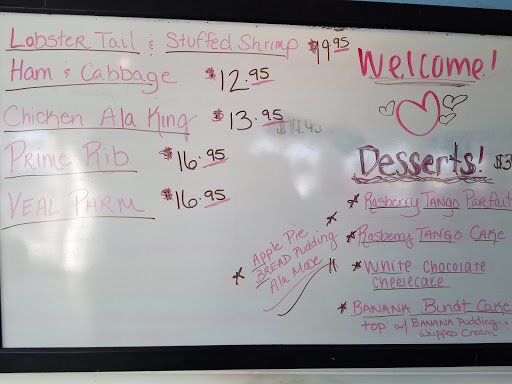 Lobster Tail & Stuffed Shrimp $19.95
Ham & Cabbage $12.95
Chicken Ala King $13.95
Prime Rib $16.95
VEAL PARM $16.95
Welcome!
Desserts! $3
* Rasberry TANGO Parfait
* Rasberry TANGO CAKE
* White Chocolate
cheesecake
* BANANA Bundt Cake
top w/ BANANA Pudding &
Whipped Cream
* Apple Pie
* BREAD Pudding
Ala Mode